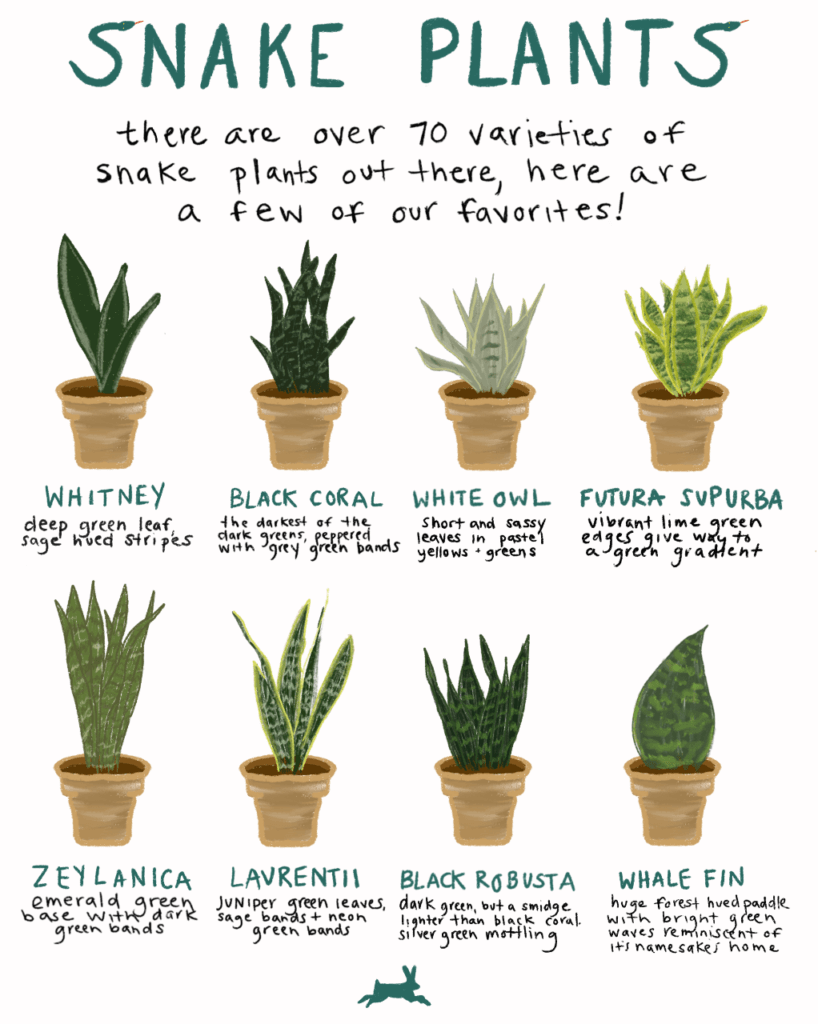 SNAKE PLANTS
there are over 70 varieties of
snake plants out there, here are
a few of our favorites!
WHITNEY
deep green leaf,
sage hued stripes
BLACK CORAL
the darkest of the
dark greens, peppered
with grey green bands
WHITE OWL
short and sassy
leaves in pastel
yellows + greens
FUTURA SUPURBA
vibrant lime green
edges give way to
a green gradient
ZEYLANICA
emerald green
base with dark
green bands
LAURENTII
juniper green leaves,
sage bands + neon
green bands
BLACK ROBUSTA
dark green, but a smidge
lighter than black coral.
silver green mottling
WHALE FIN
huge forest hued paddle
with bright green
waves reminiscent of
it's namesakes home